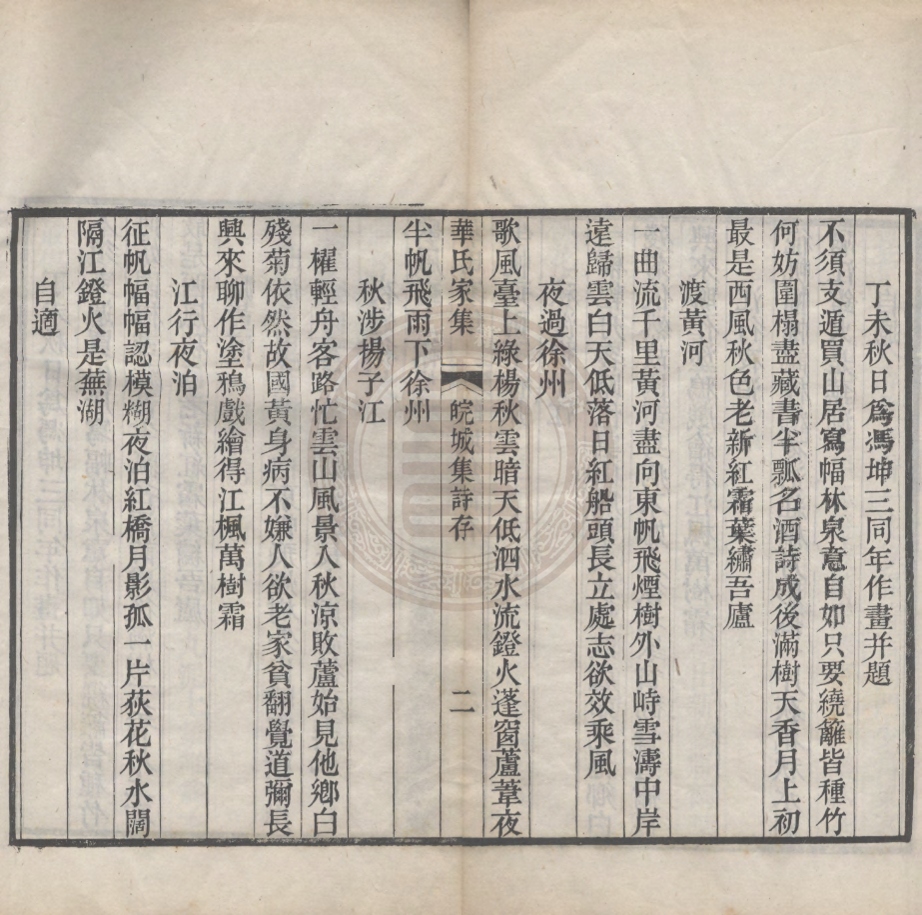 丁未秋日爲馮坤三同年作畫并題
不須支遁買山居寫幅林泉意自如只要繞籬皆種竹
何妨圍榻盡藏書半瓢名酒詩成後滿樹天香月上初
最是西風秋色老新紅霜葉繡吾廬
渡黃河
一曲流千里黃河盡向東帆飛煙樹外山峙雪濤中岸
遠歸雲白天低落日紅船頭長立處志欲效乘風
夜過徐州
歌風臺上綠楊秋雲暗天低泗水流鐙火蓬窗蘆葦夜
華氏家集 皖城集詩存 二
半帆飛雨下徐州
秋涉揚子江
一櫂輕舟客路忙雲山風景入秋涼敗蘆始見他鄉白
殘菊依然故國黃身病不嫌人欲老家貧翻覺道彌長
興來聊作塗鴉戲繪得江楓萬樹霜
江行夜泊
征帆幅幅認模糊夜泊紅橋月影孤一片荻花秋水闊
隔江鐙火是蕪湖
自適